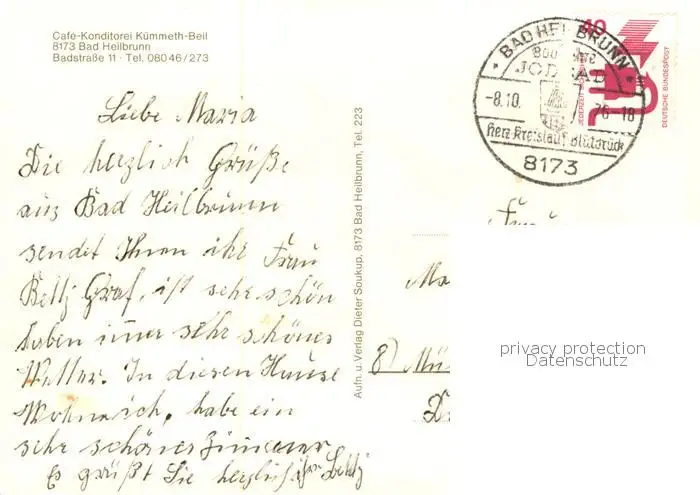 Café-Konditorei Kümmeth-Beil
8173 Bad Heilbrunn
Badstraße 11 · Tel. 08046/273
Liebe Maria
Die herzlich Grüße
aus Bad Heilbrunn
sendet Ihnen ihr Frau
Betty Graf, ist sehr schön
haben imer sehr schönes
Wetter. In diesen Hause
Wohne ich, habe ein
sehr schönes Zimmer
Es grüßt Sie herzlich ihre Betty
Aufn. u. Verlag Dieter Soukup, 8173 Bad Heilbrunn, Tel. 223
BAD HEILBRUNN
JODBAD
-8.10. 76-18
Herz Kreislauf Blutdruck
8173
40
JEDERZEIT
DEUTSCHE BUNDESPOST
Frau
Ma
8) Mü
privacy protection
Datenschutz